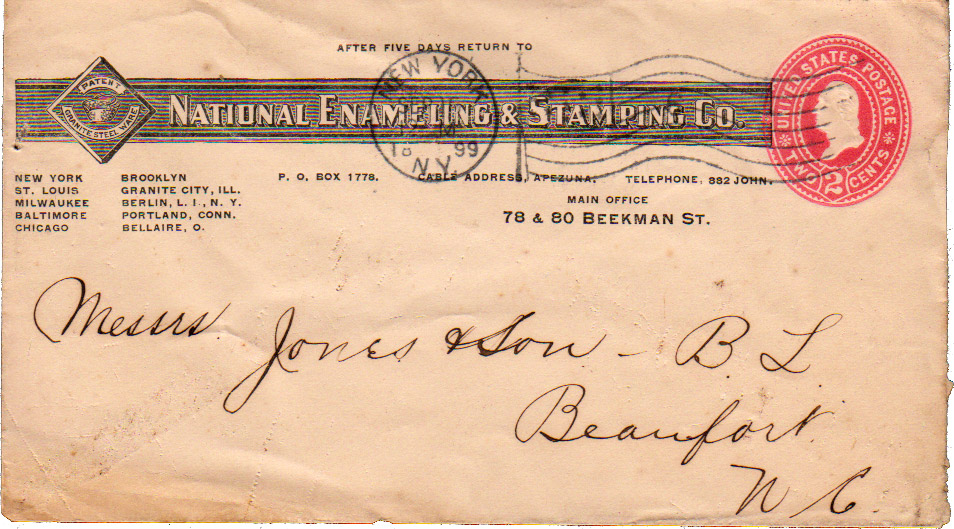 AFTER FIVE DAYS RETURN TO
PATENT
GRANITE STEEL WARE
NATIONAL ENAMELING & STAMPING CO.
NEW YORK
18 99
N.Y.
UNITED STATES POSTAGE
TWO 2 CENTS
NEW YORK BROOKLYN
ST. LOUIS GRANITE CITY, ILL.
MILWAUKEE BERLIN, L. I., N. Y.
BALTIMORE PORTLAND, CONN.
CHICAGO BELLAIRE, O.
P. O. BOX 1778. CABLE ADDRESS, APEZUNA. TELEPHONE, 882 JOHN.
MAIN OFFICE
78 & 80 BEEKMAN ST.
Messrs. Jones & Son - B L
Beaufort
N C.